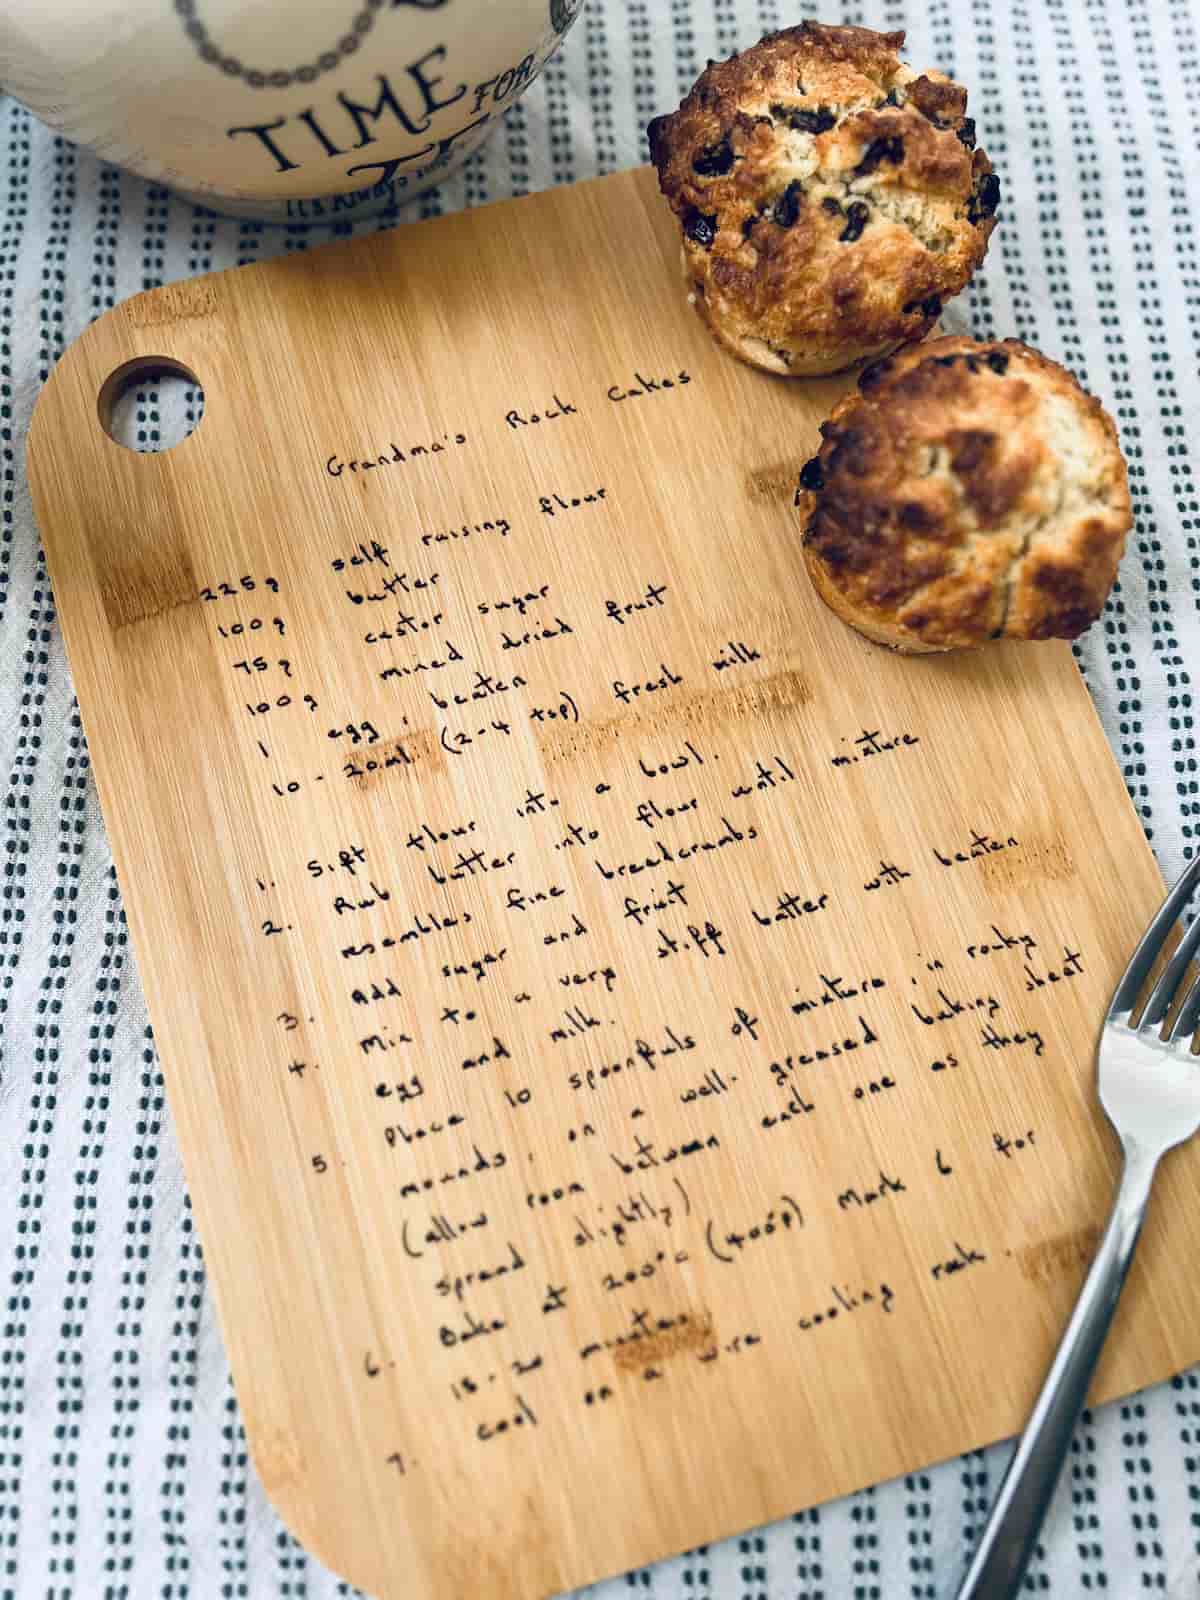 TIME FOR
It's Always
Grandma's Rock Cakes
225g self raising flour
100g butter
75g castor sugar
100g mixed dried fruit
1 egg, beaten
10-20ml (2-4 tsp) fresh milk
1. Sift flour into a bowl.
2. Rub butter into flour until mixture
resembles fine breadcrumbs
3. Add sugar and fruit
4. Mix to a very stiff batter with beaten
egg and milk.
5. Place 10 spoonfuls of mixture, in rocky
mounds, on a well-greased baking sheet
(allow room between each one as they
spread slightly)
6. Bake at 200°c (400°F) Mark 6 for
15-20 minutes
7. Cool on a wire cooling rack.